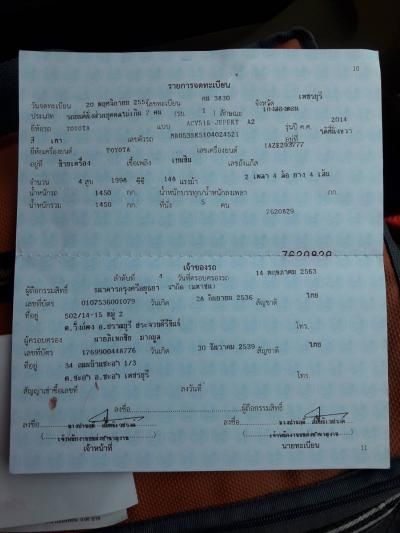 10
รายการจดทะเบียน
วันจดทะเบียน 20 พฤศจิกายน 255 เลขทะเบียน กม 3830 จังหวัด เพชรบุรี
ประเภท รถยนต์นั่งส่วนบุคคลไม่เกิน 7 คน (รย. 1 ) ลักษณะ เก๋งสองตอน
ยี่ห้อรถ TOYOTA แบบ ACV51R-JEPEKT A2 รุ่นปี ค.ศ. 2014
สี เทา เลขตัวรถ MR053BK5104024521 อยู่ที่
ยี่ห้อเครื่องยนต์ TOYOTA เลขเครื่องยนต์ 1AZB293777
อยู่ที่ ข้างเครื่อง เชื้อเพลิง เบนซิน เลขถังแก๊ส
จำนวน 4 สูบ 1998 ซีซี 148 แรงม้า 2 เพลา 4 ล้อ ยาง 4 เส้น
น้ำหนักรถ 1450 กก. น้ำหนักบรรทุก/น้ำหนักลงเพลา กก.
น้ำหนักรวม 1450 กก. ที่นั่ง 5 คน
7620829
7620829
เจ้าของรถ
ลำดับที่ 4 วันที่ครอบครองรถ 14 พฤษภาคม 2563
ผู้ถือกรรมสิทธิ์ ธนาคารกรุงศรีอยุธยา จำกัด (มหาชน)
เลขที่บัตร 0107536001079 วันเกิด 28 กันยายน 2536 สัญชาติ ไทย
ที่อยู่ 502/14-15 หมู่ 2
โทร.
ผู้ครอบครอง
เลขที่บัตร 1769900448776 วันเกิด 30 ธันวาคม 2539 สัญชาติ ไทย
ที่อยู่ 34 1/3
ต.ชะอำ อ.ชะอำ เพชรบุรี โทร.
สัญญาเช่าซื้อเลขที่ ลงวันที่
ลงชื่อ ผู้ถือกรรมสิทธิ์
ลงชื่อ ลงชื่อ
เจ้าหน้าที่ นายทะเบียน
11